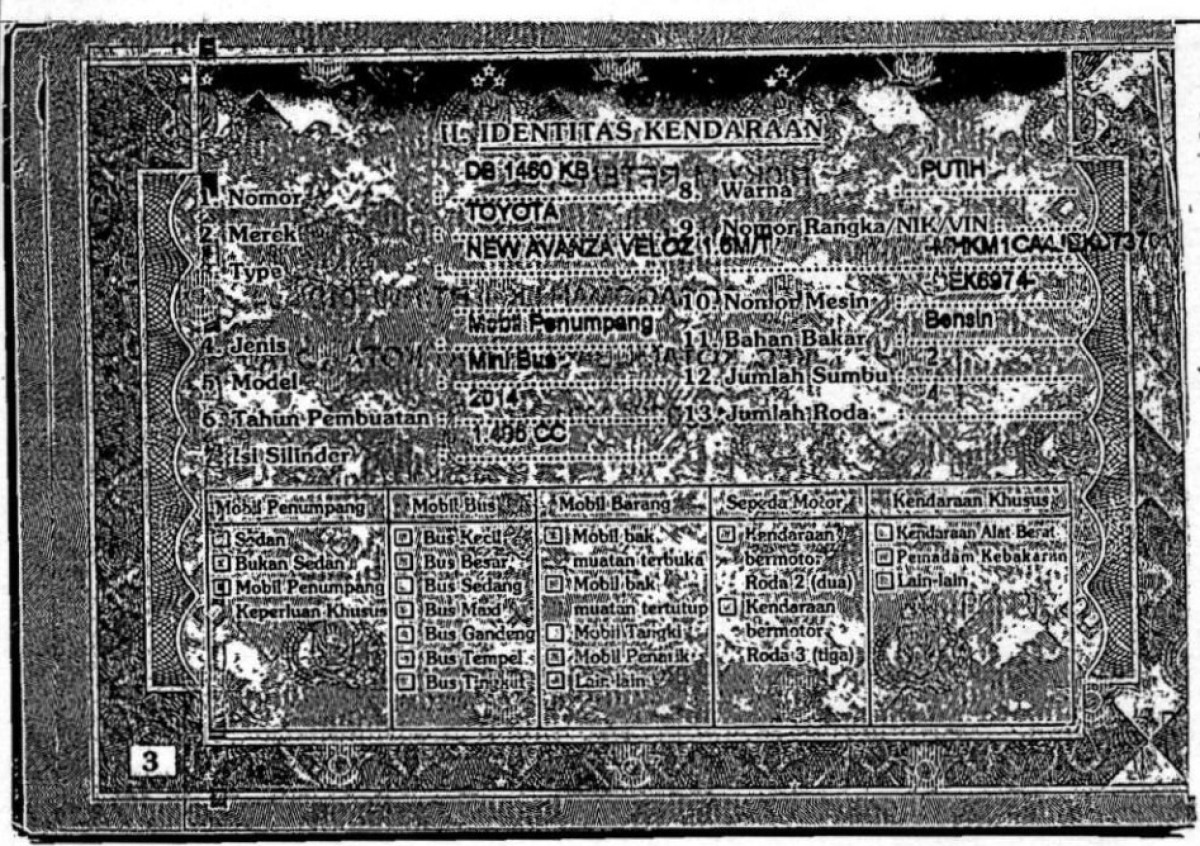 II. IDENTITAS KENDARAAN
1. Nomor : DB 1460 KB
2. Merek : TOYOTA
3. Type : NEW AVANZA VELOZ 1.5M/T
4. Jenis : Mobil Penumpang
5. Model : Mini Bus
6. Tahun Pembuatan : 2014
7. Isi Silinder : 1.495 CC
8. Warna : PUTIH
9. Nomor Rangka/NIK/VIN :
10. Nomor Mesin :
11. Bahan Bakar : Bensin
12. Jumlah Sumbu : 2
13. Jumlah Roda : 4
Mobil Penumpang
Sedan
Bukan Sedan
Mobil Penumpang
Keperluan Khusus
Mobil Bus
Bus Kecil
Bus Besar
Bus Sedang
Bus Maxi
Bus Gandeng
Bus Tempel
Bus Tingkat
Mobil Barang
Mobil bak
muatan terbuka
Mobil bak
muatan tertutup
Mobil Tangki
Mobil Penarik
Lain-lain
Sepeda Motor
Kendaraan
bermotor
Roda 2 (dua)
Kendaraan
bermotor
Roda 3 (tiga)
Kendaraan Khusus
Kendaraan Alat Berat
Pemadam Kebakaran
Lain-lain
3